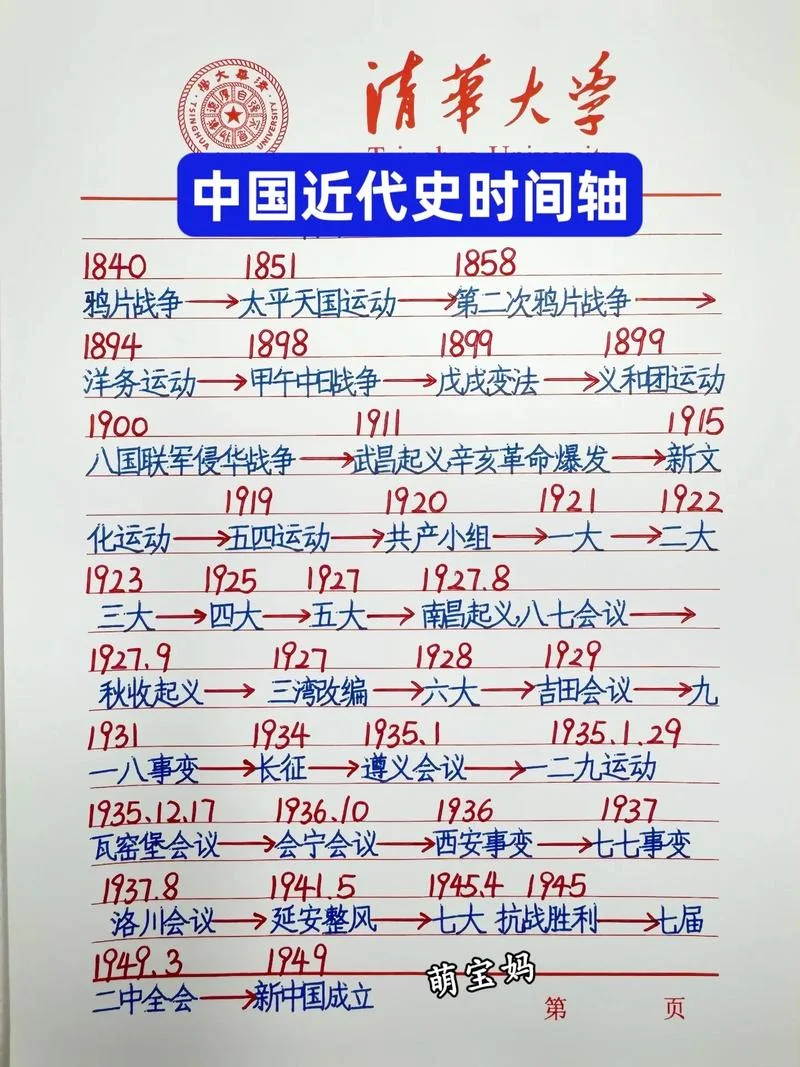 清華大学
TSINGHUA UNIVERSITY
中国近代史时间轴
1840 1851 1858
鸦片战争→太平天国运动→第二次鸦片战争→
1894 1898 1899 1899
洋务运动→甲午中日战争→戊戌变法→义和团运动
1900 1911 1915
八国联军侵华战争→武昌起义辛亥革命爆发→新文
1919 1920 1921 1922
化运动→五四运动→共产小组→一大→二大
1923 1925 1927 1927.8
三大→四大→五大→南昌起义,八七会议→
1927.9 1927 1928 1929
秋收起义→三湾改编→六大→吉田会议→九
1931 1934 1935.1 1935.1.29
一八事变→长征→遵义会议→一二九运动
1935.12.17 1936.10 1936 1937
瓦窑堡会议→会宁会议→西安事变→七七事变
1937.8 1941.5 1945.4 1945
洛川会议→延安整风→七大 抗战胜利→七届
1949.3 1949
二中全会→新中国成立
萌宝妈
第 页